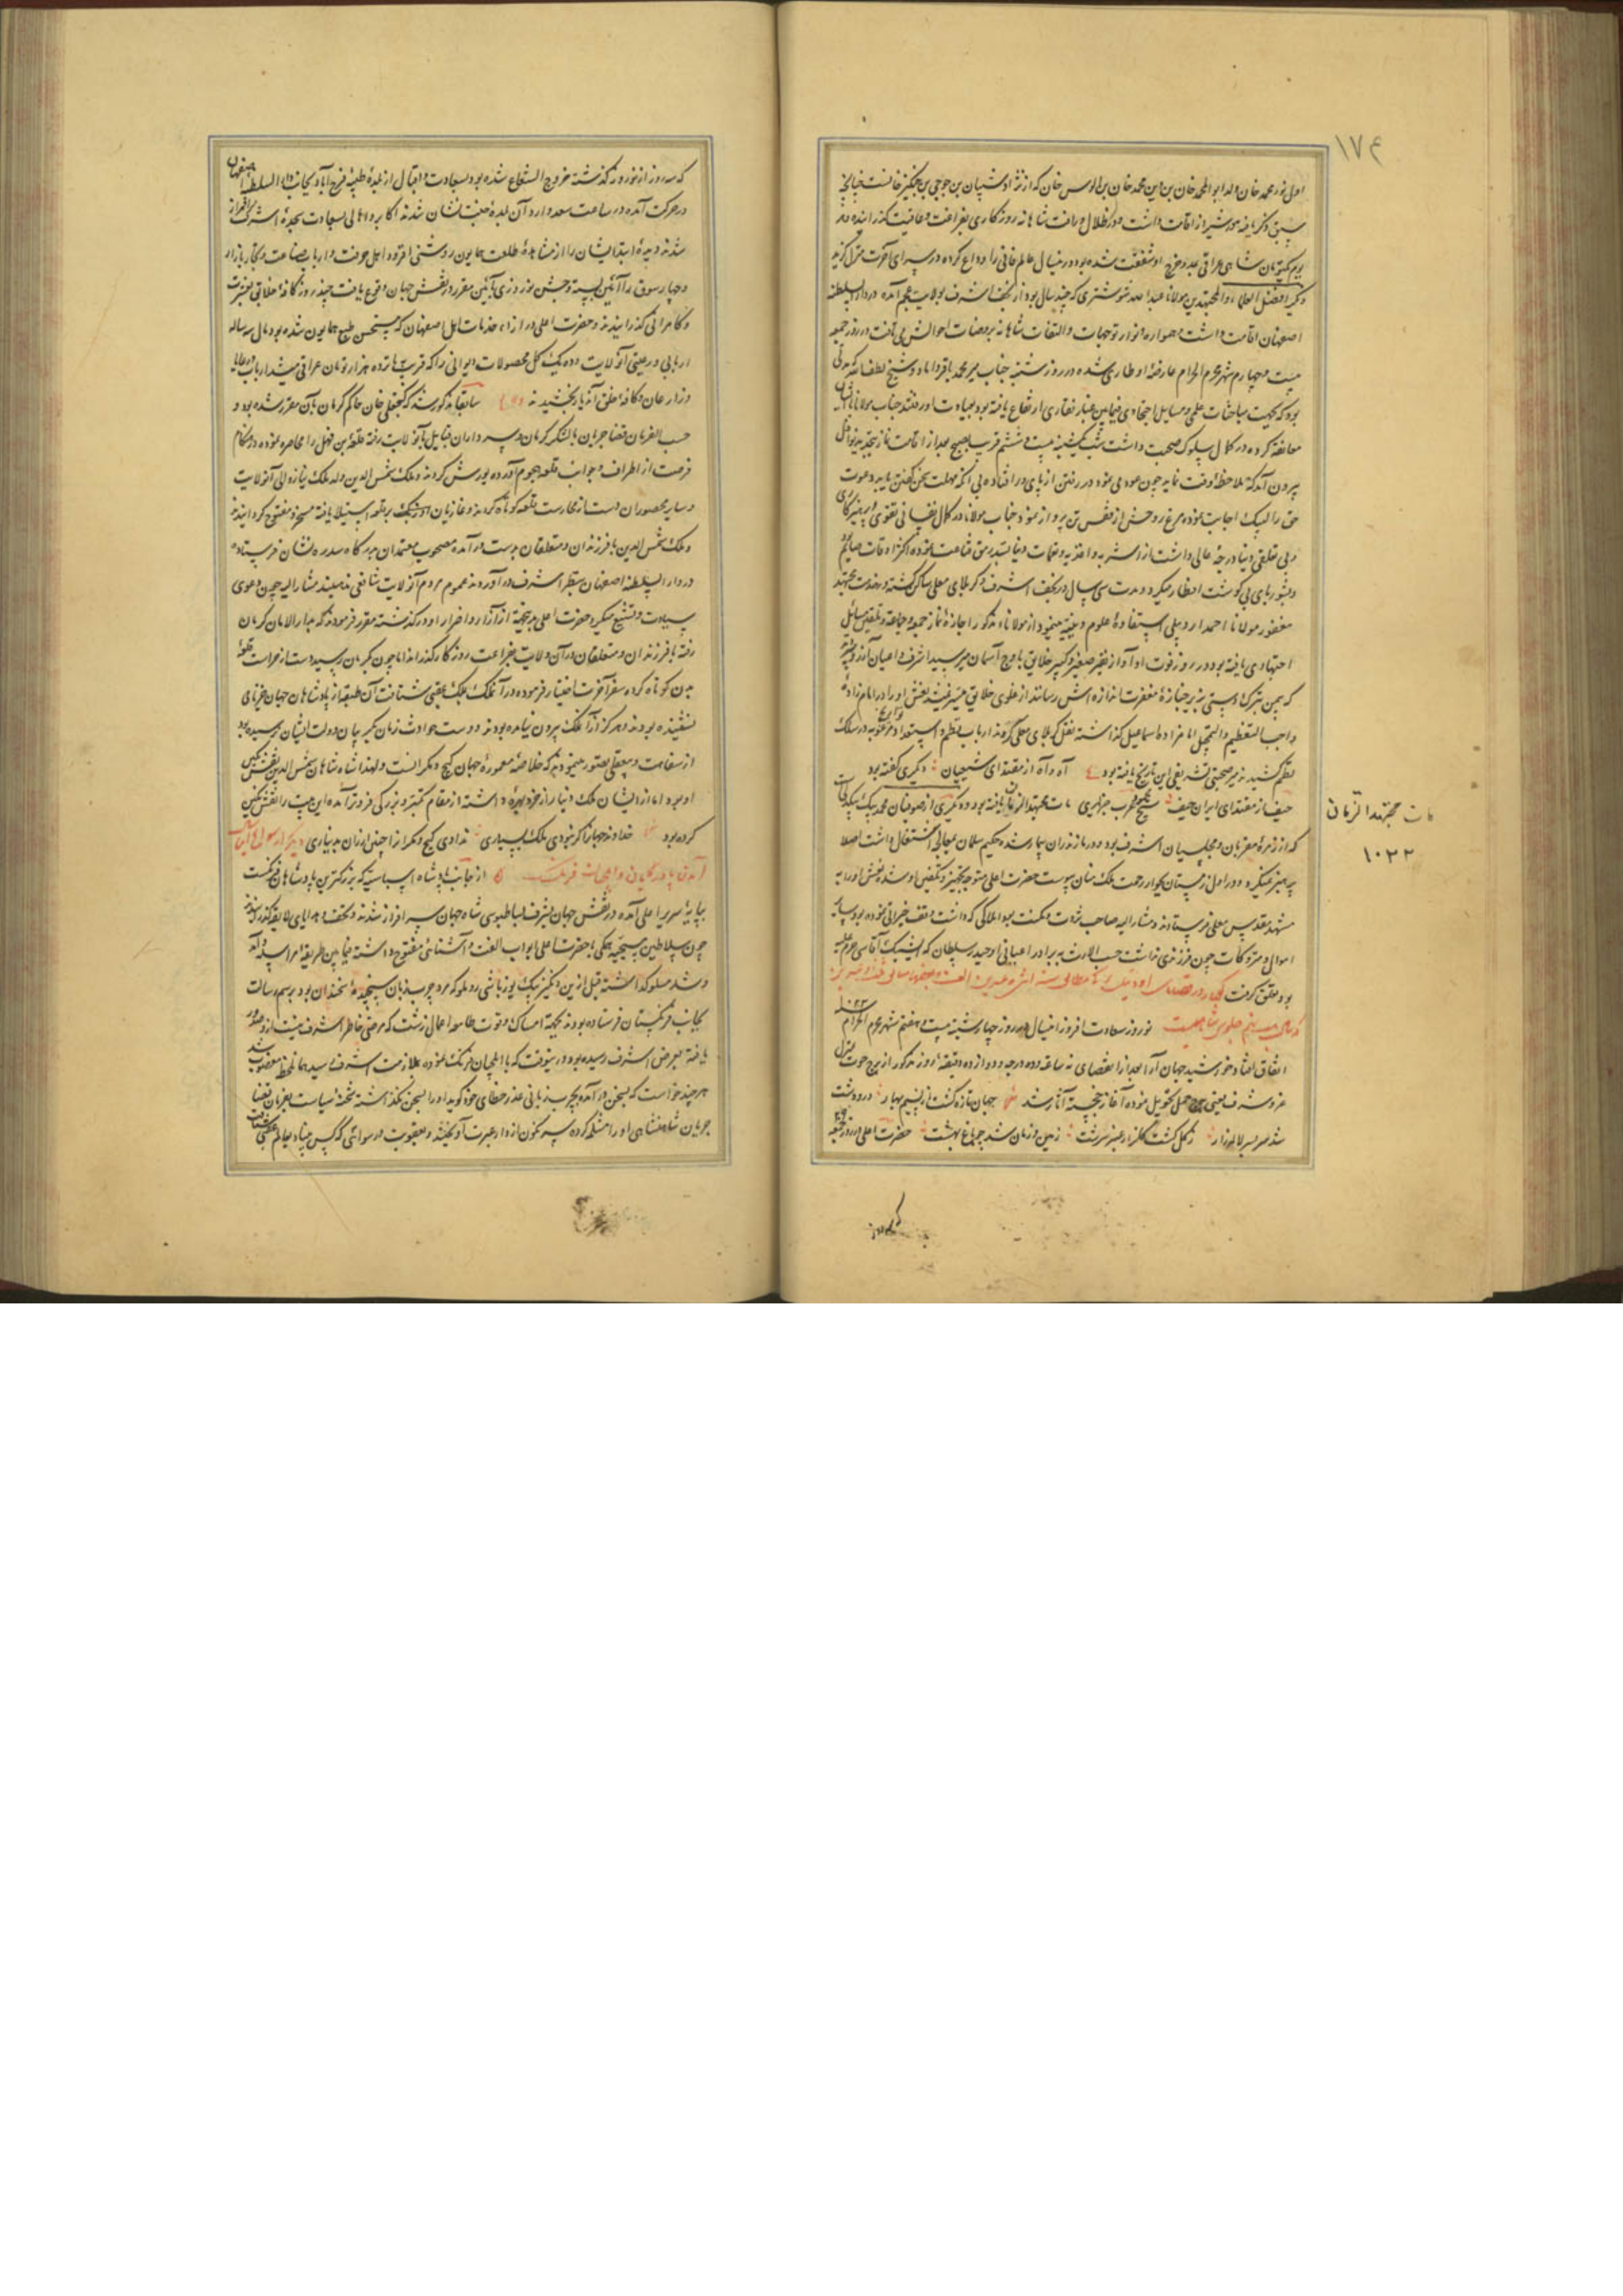 ۱۷۴
اول نور محمد خان ولد ابوالمحمد خان بن دین محمد خان بن الوس خان که از نژاد شیبان بن جوجی بن چنگیز خانست چنانچه
سبق ذکر یافته در شیراز اقامت داشت و در ظلال رأفت شاهانه روزکاری بفراغت و عافیت گذرانیده
یکتومان شاهی عراقی مدد خرج او شفقت شده بود درینسال عالم فانی را وداع کرده در سرای آخرت منزل گزید
دیگر افضل العلماء و المجتهدین مولانا عبدالله شوشتری که چند سال بود از نجف اشرف بولایت عجم آمده در دارالسلطنه
اصفهان اقامت داشت و همواره انوار توجهات و التفات شاهانه بر وجنات احوالش می تافت در روز جمعه
بیست و چهارم شهر محرم الحرام عارضهٔ او طاری شده در روز شنبه جناب میر محمد باقر داماد و شیخ لطف الله که مدتی
بود که بجهت مباحثات علمی و مسایل اجتهادی فیمابین غبار نقاری ارتفاع یافته بود بعیادت او رفتند جناب مولانا با ایشان
معانقه کرده در کمال سلوک صحبت داشت شب یکشنبه بیست و ششم قریب بصبح بعد از اقامت نماز تهجد و نوافل
بیرون آمد که ملاحظهٔ وقت نماید چون عود می نمود در رفتن از پای در افتاده بی آنکه مهلت سخن گفتن یابد دعوت
حق را لبیک اجابت نموده مرغ روحش از قفس تن پرواز نمود جناب مولانا در کمال نفسانی تقوی و پرهیزکاری
و بی تعلقی دنیا درجهٔ عالی داشت از اشربه و اغذیه و نعمات دنیا بسد رمق قناعت نموده اکثر اوقات صایم بود
و بشوربای بی گوشت افطار میکرد و مدت سی سال در نجف اشرف و کربلای معلی ساکن گشته در خدمت مجتهد
مغفور مولانا احمد اردبیلی استفادهٔ علوم دینیه مینمود از مولانای مذکور اجازهٔ نماز جمعه و جماعة و تلقین مسایل
اجتهادی یافته بود در روز فوت او آواز نفیر صغیر و کبیر خلایق باوج آسمان میرسید اشراف و اعیان آرزو
که بیمن تبرک دستی بزیر جنازهٔ مغفرت اندازه اش رسانند از غلوی خلایق میسر نمیشد نعش او را در امامزادهٔ
واجب التعظیم والتبجیل امامزاده اسماعیل گذاشته نقل کربلای معلی کردند ارباب نظم و استعداد تواریخ مرغوبه در سلک
نظم کشیدند میر صحبتی تفرشی این تاریخ یافته بود ع آه آه از مقتدای شیعیان دیگری گفته بود
حیف از مقتدای ایران حیف شیخ محمود عرب جزایری مات مجتهد الزمان یافته بود دیگری از صوفیان محمد بیک بیکدلی است
که از زمرهٔ مقربان و مجلسیان اشرف بود در مازندران بیمار شده حکیم سلمان بمعالجه اشتغال داشت اصلا
پرهیز نمیکرد و در اول زمستان بجوار رحمت ملک منان پیوست حضرت اعلی متوجه تجهیز و تکفین او شده نعش او را به
مشهد مقدس معلی فرستادند و مشارالیه صاحب ثروت و مکنت بود املاکی که داشت وقف خیراتی نموده بود سایر
اموال و متروکات چون فرزندی نداشت حسب الارث به برادر اعیانی او حیدر سلطان که ایشیک آقاسی حرم علیه
بود تعلق گرفت
نوروز سعادت افروز اینسال در روز چهارشنبه بیست و هفتم شهر محرم الحرام ۱۰۲۳
اتفاق افتاد خورشید جهان آرا بعد از انقضای نه ساعة و ده درجه و دوازده دقیقهٔ روز مذکور از برج حوت بمنزل
عز و شرف یعنی برج حمل تحویل نموده آغاز خجسته آثار شد جهان تازه گشت از نسیم بهار در و دشت
شد سر بسر لاله زار ز گل گشت گلزار عنبر سرشت زمین و زمان شد چو باغ بهشت حضرت اعلی در روز جمعه
مات مجتهد الزمانی
۱۰۲۲
که سه روز از نوروز گذشته خروج الشعاع شده بود بسعادت و اقبال از بلدهٔ طیبهٔ فرح آباد بجانب دارالسلطنهٔ اصفهان
در حرکت آمده در ساعت سعد وارد آن بلدهٔ جنت نشان شدند اکابر و اهالی بسعادت سجدهٔ اشرف سرافراز
شدند و دیدهٔ امید ایشان را از مشاهدهٔ طلعت همایون روشنی افزود اهل حرفت و ارباب صناعت و تجار بازار
و چهارسوق را آئین بسته و جشن نوروزی بآئین مقرر در نقش جهان وقوع یافت چند روز کافهٔ خلایق بعشرت
و کامرانی گذرانیدند و حضرت اعلی در ازاء خدمات اهل اصفهان که مستحسن طبع همایون شده بود مال سه ساله
اربابی و رعیتی آنولایت و ده یک کل محصولات دیوانی را که قریب پانزده هزار تومان عراقی میشد بارباب و رعایا
و زارعان و کافهٔ خلق آندیار بخشیدند سابقا مذکور شد که گنجعلی خان حاکم کرمان بآن مقرر شده بود و
حسب الفرمان قضا جریان با لشکر کرمان و سرداران قبایل بآنولایت رفته قلعهٔ بن فهل را محاصره نموده در هنگام
فرصت از اطراف و جوانب قلعه هجوم آورده یورش کردند و ملک شمس الدین ولد ملک دینار والی آنولایت
و سایر محصوران دست از محارست قلعه کوتاه کردند و غازیان بر قلعه استیلا یافته مسخر و مفتوح گردانیدند
و ملک شمس الدین با فرزندان و متعلقان بدست درآمده مصحوب معتمدان بدرگاه سدره نشان فرستاده
در دارالسلطنه اصفهان بنظر اشرف درآوردند عموم مردم آنولایت شافعی مذهبند مشارالیه چون دعوی
سیادت و تشیع میکرد حضرت اعلی از آزار و اضرار او درگذشته مقرر فرمودند که بدارالامان کرمان
رفته با فرزندان و متعلقان در آن ولایت بفراغت روزگار گذراند اما چون بکرمان رسید دست از حراست قلعهٔ
بدن کوتاه کرده سفر آخرت اختیار فرموده در آن ملک بملک عقبی شتافت آن طبقه از پادشاهان جهان جز نامی
نشنیده بودند و هرگز از آن ملک بیرون نیامده بودند و دست حوادث زمان بگریبان دولت ایشان نرسیده بود
از سفاهت و بیعقلی تصور مینمودند که خلاصهٔ معمورهٔ جهان کیج و مکرانست و لهذا شاه شاهان شمس الدین نقش نگین
او بود اما از ایشان ملک دنیار از خرد بهره داشته از مقام کبر و بزرگی فروتر آمده این بیت را نقش نگین
کرده بود خداوند جهانرا گر نبودی ملک بسیاری ندادی کیج و مکران از چنین ارزان بدیناری
آمدن پادریان و ایلچیان فرنگ از جانب پادشاه اسپانیه که بزرگترین پادشاهان فرنگست
بپایهٔ سریر اعلی آمده در نقش جهان بشرف بساطبوسی شاه جهان سرافراز شدند و تحف و هدایای لایقه گذرانیدند
چون سلاطین مسیحیه همگی با حضرت اعلی ابواب الفت و آشنائی مفتوح داشته فیمابین طریقهٔ مراسله و آمد
و شد مسلوکداشته قبل ازین دنگیز بیک یوزباشی روملو که مرد چرب زبان سنجیدهٔ سخندان بود برسم رسالت
بجانب فرنگستان فرستاده بودند بجهة امساک و طمع اعمال زشت که مرضی خاطر اشرف نیست ازو صدور
یافته بعرض اشرف رسیده بود درینوقت که با ایلچیان فرنگ بملازمت اشرف رسید همان لحظه مغضوب شد
هر چند خواست که بسخن درآمده بچرب زبانی عذر خطای خود گوید او را بسخن نگذاشته تختهٔ سیاست بفرمان قضا
جریان شاهنشاهی او را مثله کرده سرنگون از دار عبرت آویختند و بعقوبت و رسوائی که کس مبیناد بعالم عقبی شتافت